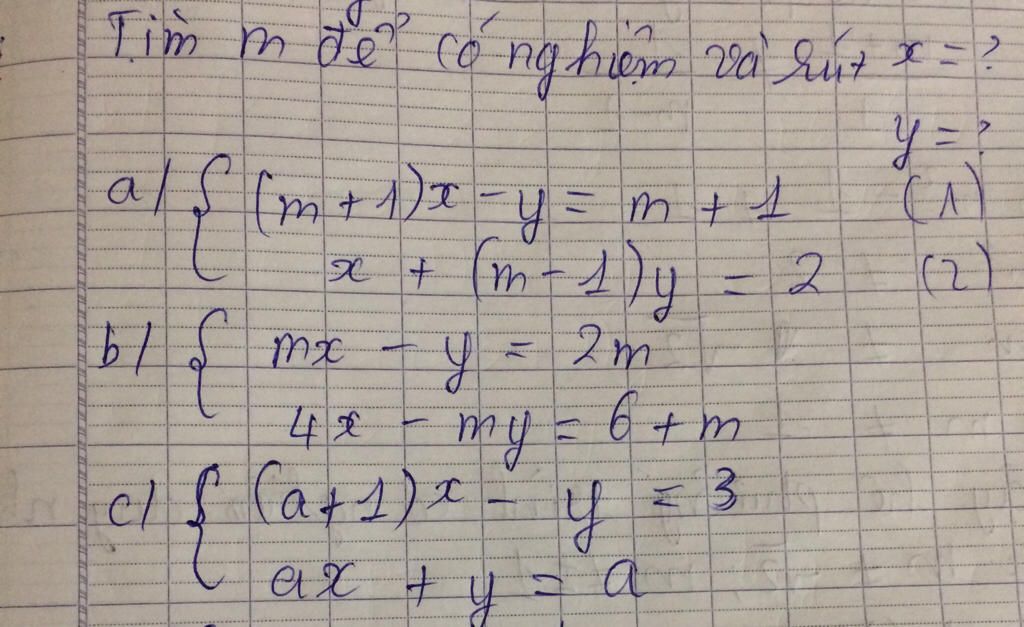 Tìm m để có nghiệm và rút x = ?
y = ?
a/ { (m + 1)x - y = m + 1 (1)
x + (m - 1)y = 2 (2)
b/ { mx - y = 2m
4x - my = 6 + m
c/ { (a + 1)x - y = 3
ax + y = a